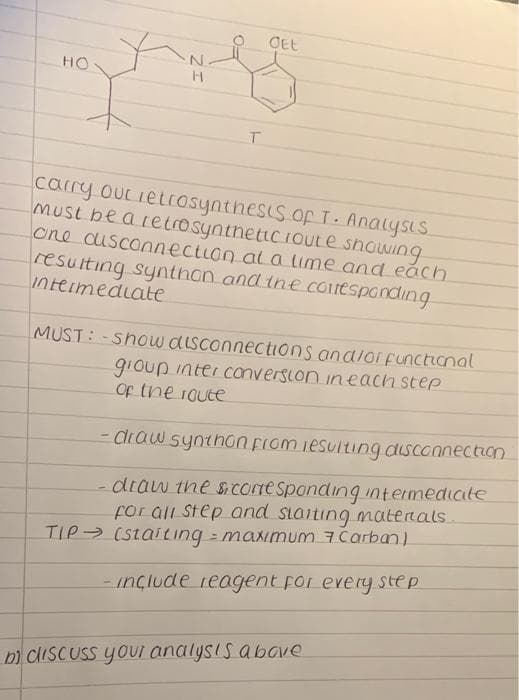 O OEt
HO
N
H
T
carry out retrosynthesis of T. Analysis
must be a retrosynthetic route showing
one disconnection at a time and each
resulting synthon and the corresponding
intermediate
MUST: - show disconnections and/or functional
group inter conversion in each step
of the route
- draw synthon from resulting disconnection
- draw the corresponding intermediate
for all step and starting materials.
TIP → (starting = maximum 7 carbon)
- include reagent for every step
b) discuss your analysis above